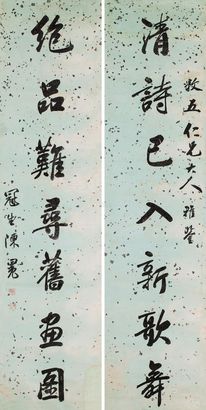 五仁兄大人雅鑒
清詩已入新歌舞
絶品難尋舊畫圖
冠生陳冕